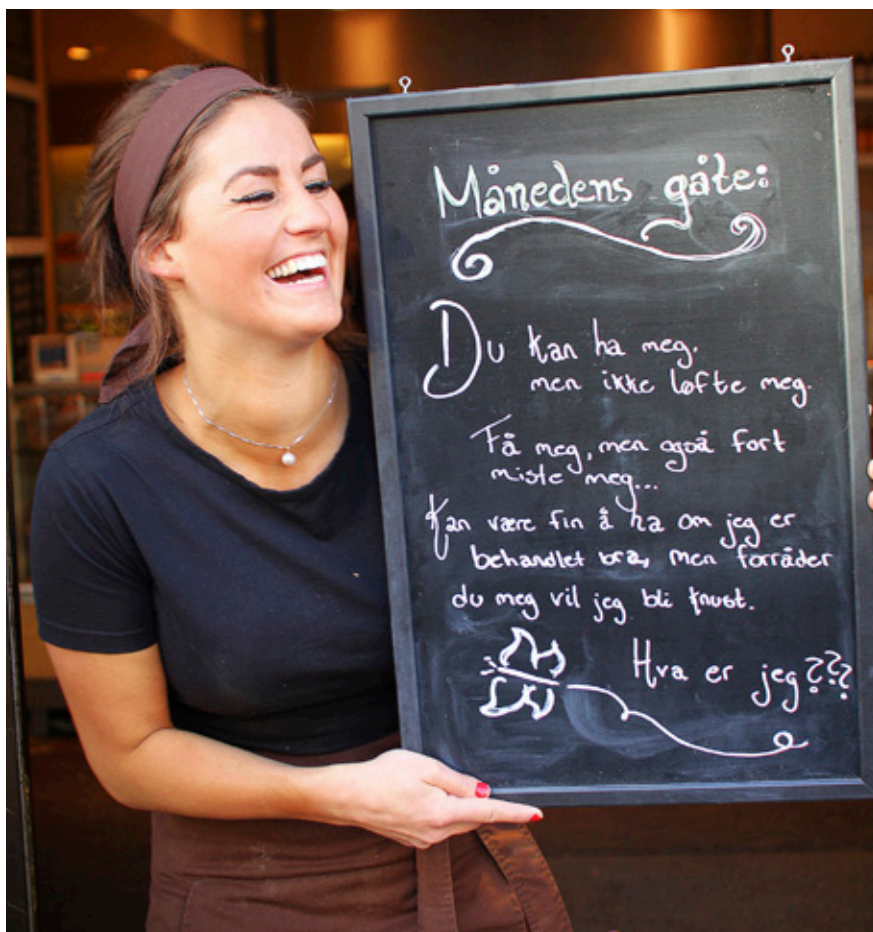 Månedens gåte:
Du kan ha meg.
men ikke løfte meg.
Få meg, men også fort
miste meg...
Kan være fin å ha om jeg er
behandlet bra, men forråder
du meg vil jeg bli knust.
Hva er jeg???